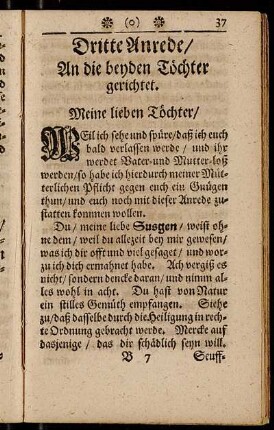 (o) 37
Dritte Anrede/
An die beyden Töchter
gerichtet.
Meine lieben Töchter/
WEil ich sehe und spüre/daß ich euch
bald verlassen werde / und ihr
werdet Vater-und Mutter-loß
werden/so habe ich hierdurch meiner Müt-
terlichen Pflicht gegen euch ein Gnügen
thun/und euch noch mit dieser Anrede zu-
statten kommen wollen.
Du / meine liebe Susgen/ weist oh-
ne dem/ weil du allezeit bey mir gewesen/
was ich dir offt und viel gesaget/ und wor-
zu ich dich ermahnet habe. Ach vergiß es
nicht/ sondern dencke daran/ und nimm al-
les wohl in acht. Du hast von Natur
ein stilles Gemüth empfangen. Siehe
zu/daß dasselbe durch die Heiligung in rech-
te Ordnung gebracht werde. Mercke auf
dasjenige / das dir schädlich seyn will.
B 7 Seuff-